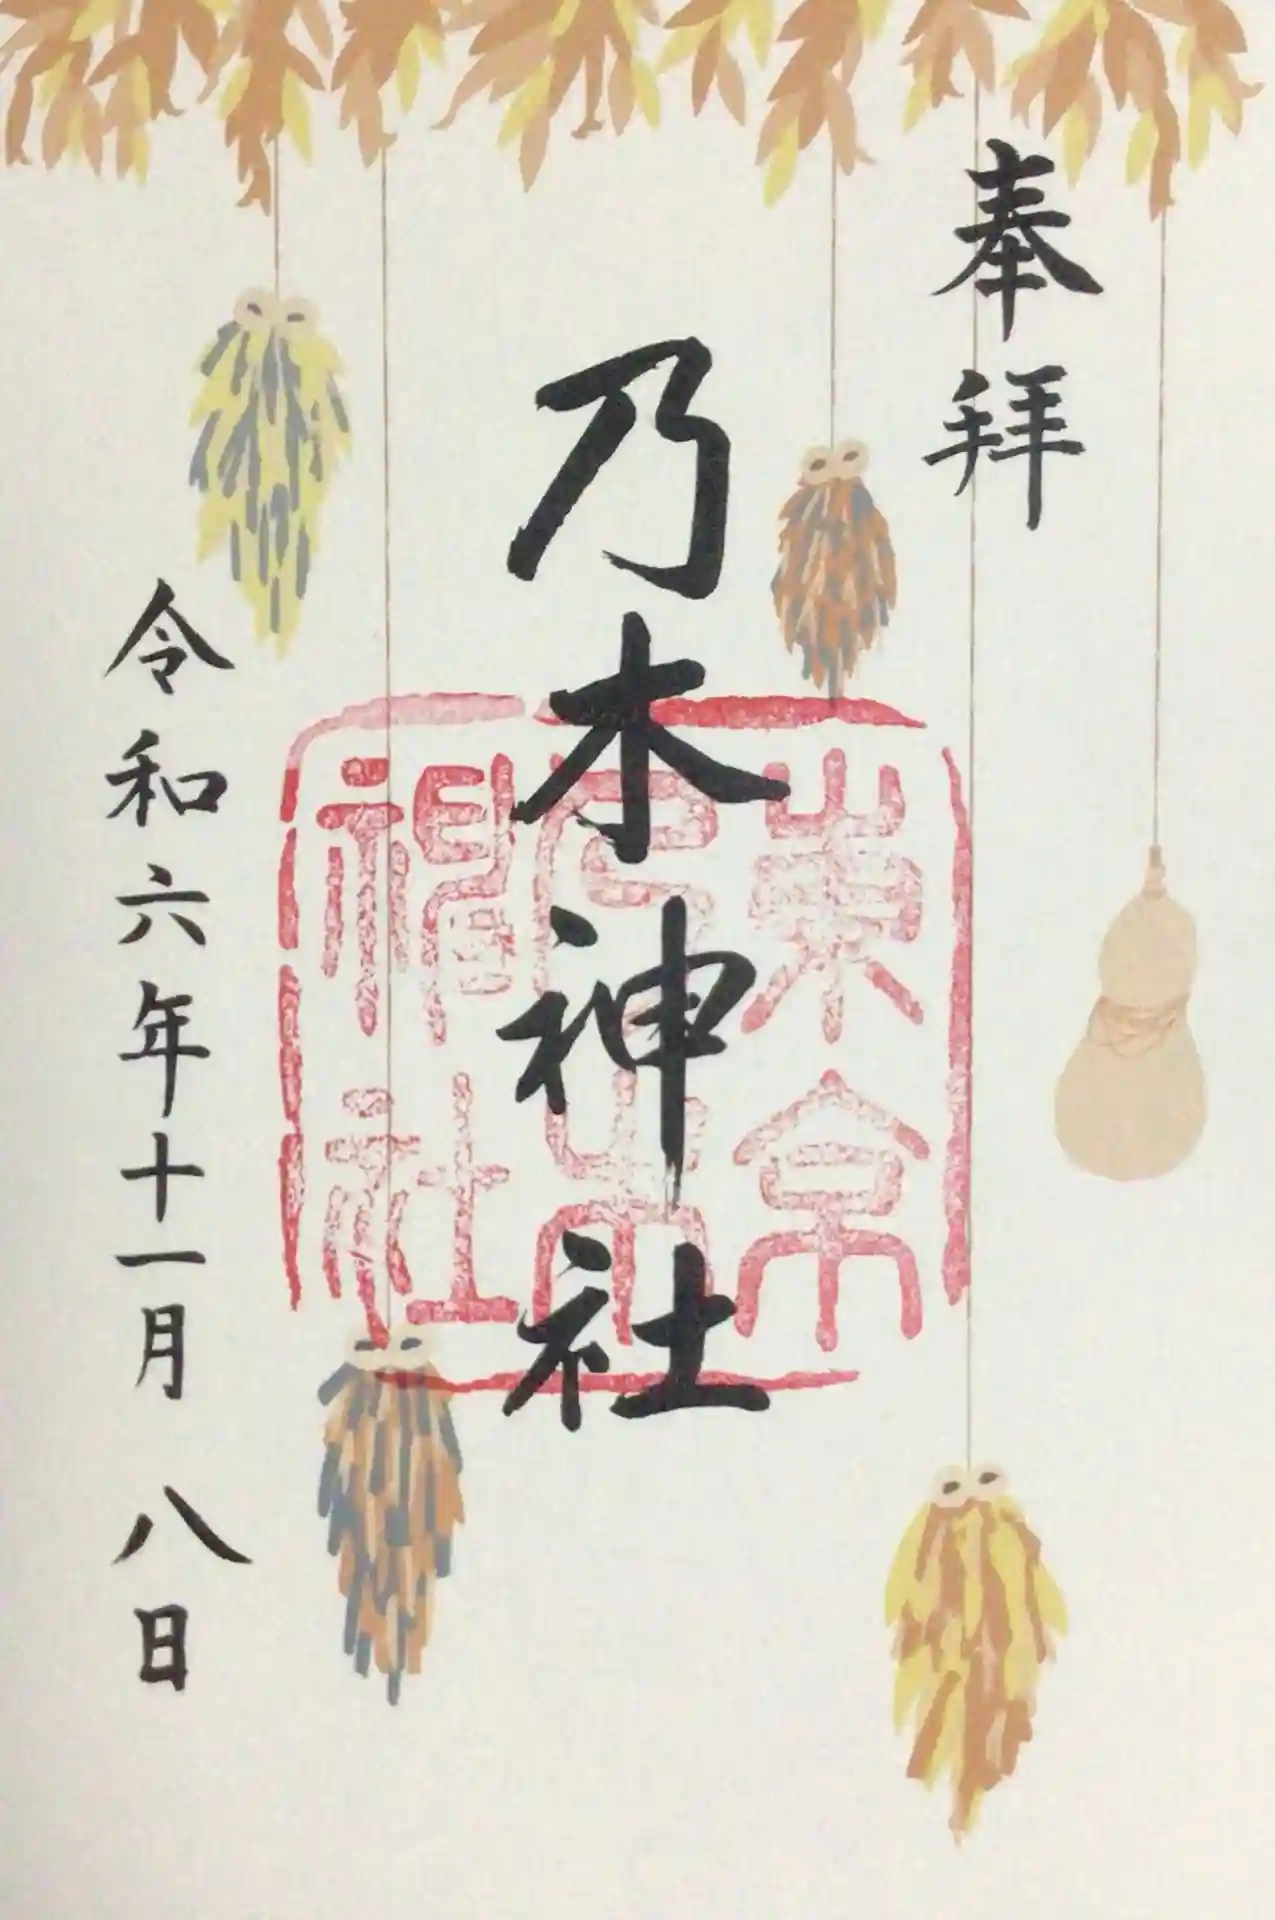 奉拝
乃木神社
東京
乃木
神社
令和六年十一月八日